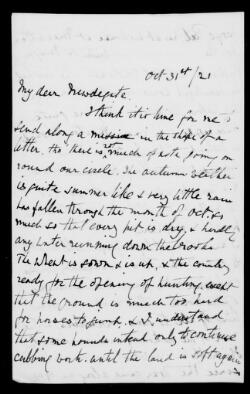 Oct 31st/21
My dear Newdegate.
I think it is time for me to
send along a missive in the shape of a
letter, tho there is not much of note going on
round our circle. The autumn weather
is quite summer like & very little rain
has fallen through the month of Oct, so
much so that every pit is dry, & hardly
any water running down the brooks
The wheat is sown & is up, & the country
ready for the opening of hunting, except
that the ground is much too hard
for horses to jump, & I understand
that some hounds intend only to continue
cubbing work until the land is soft again